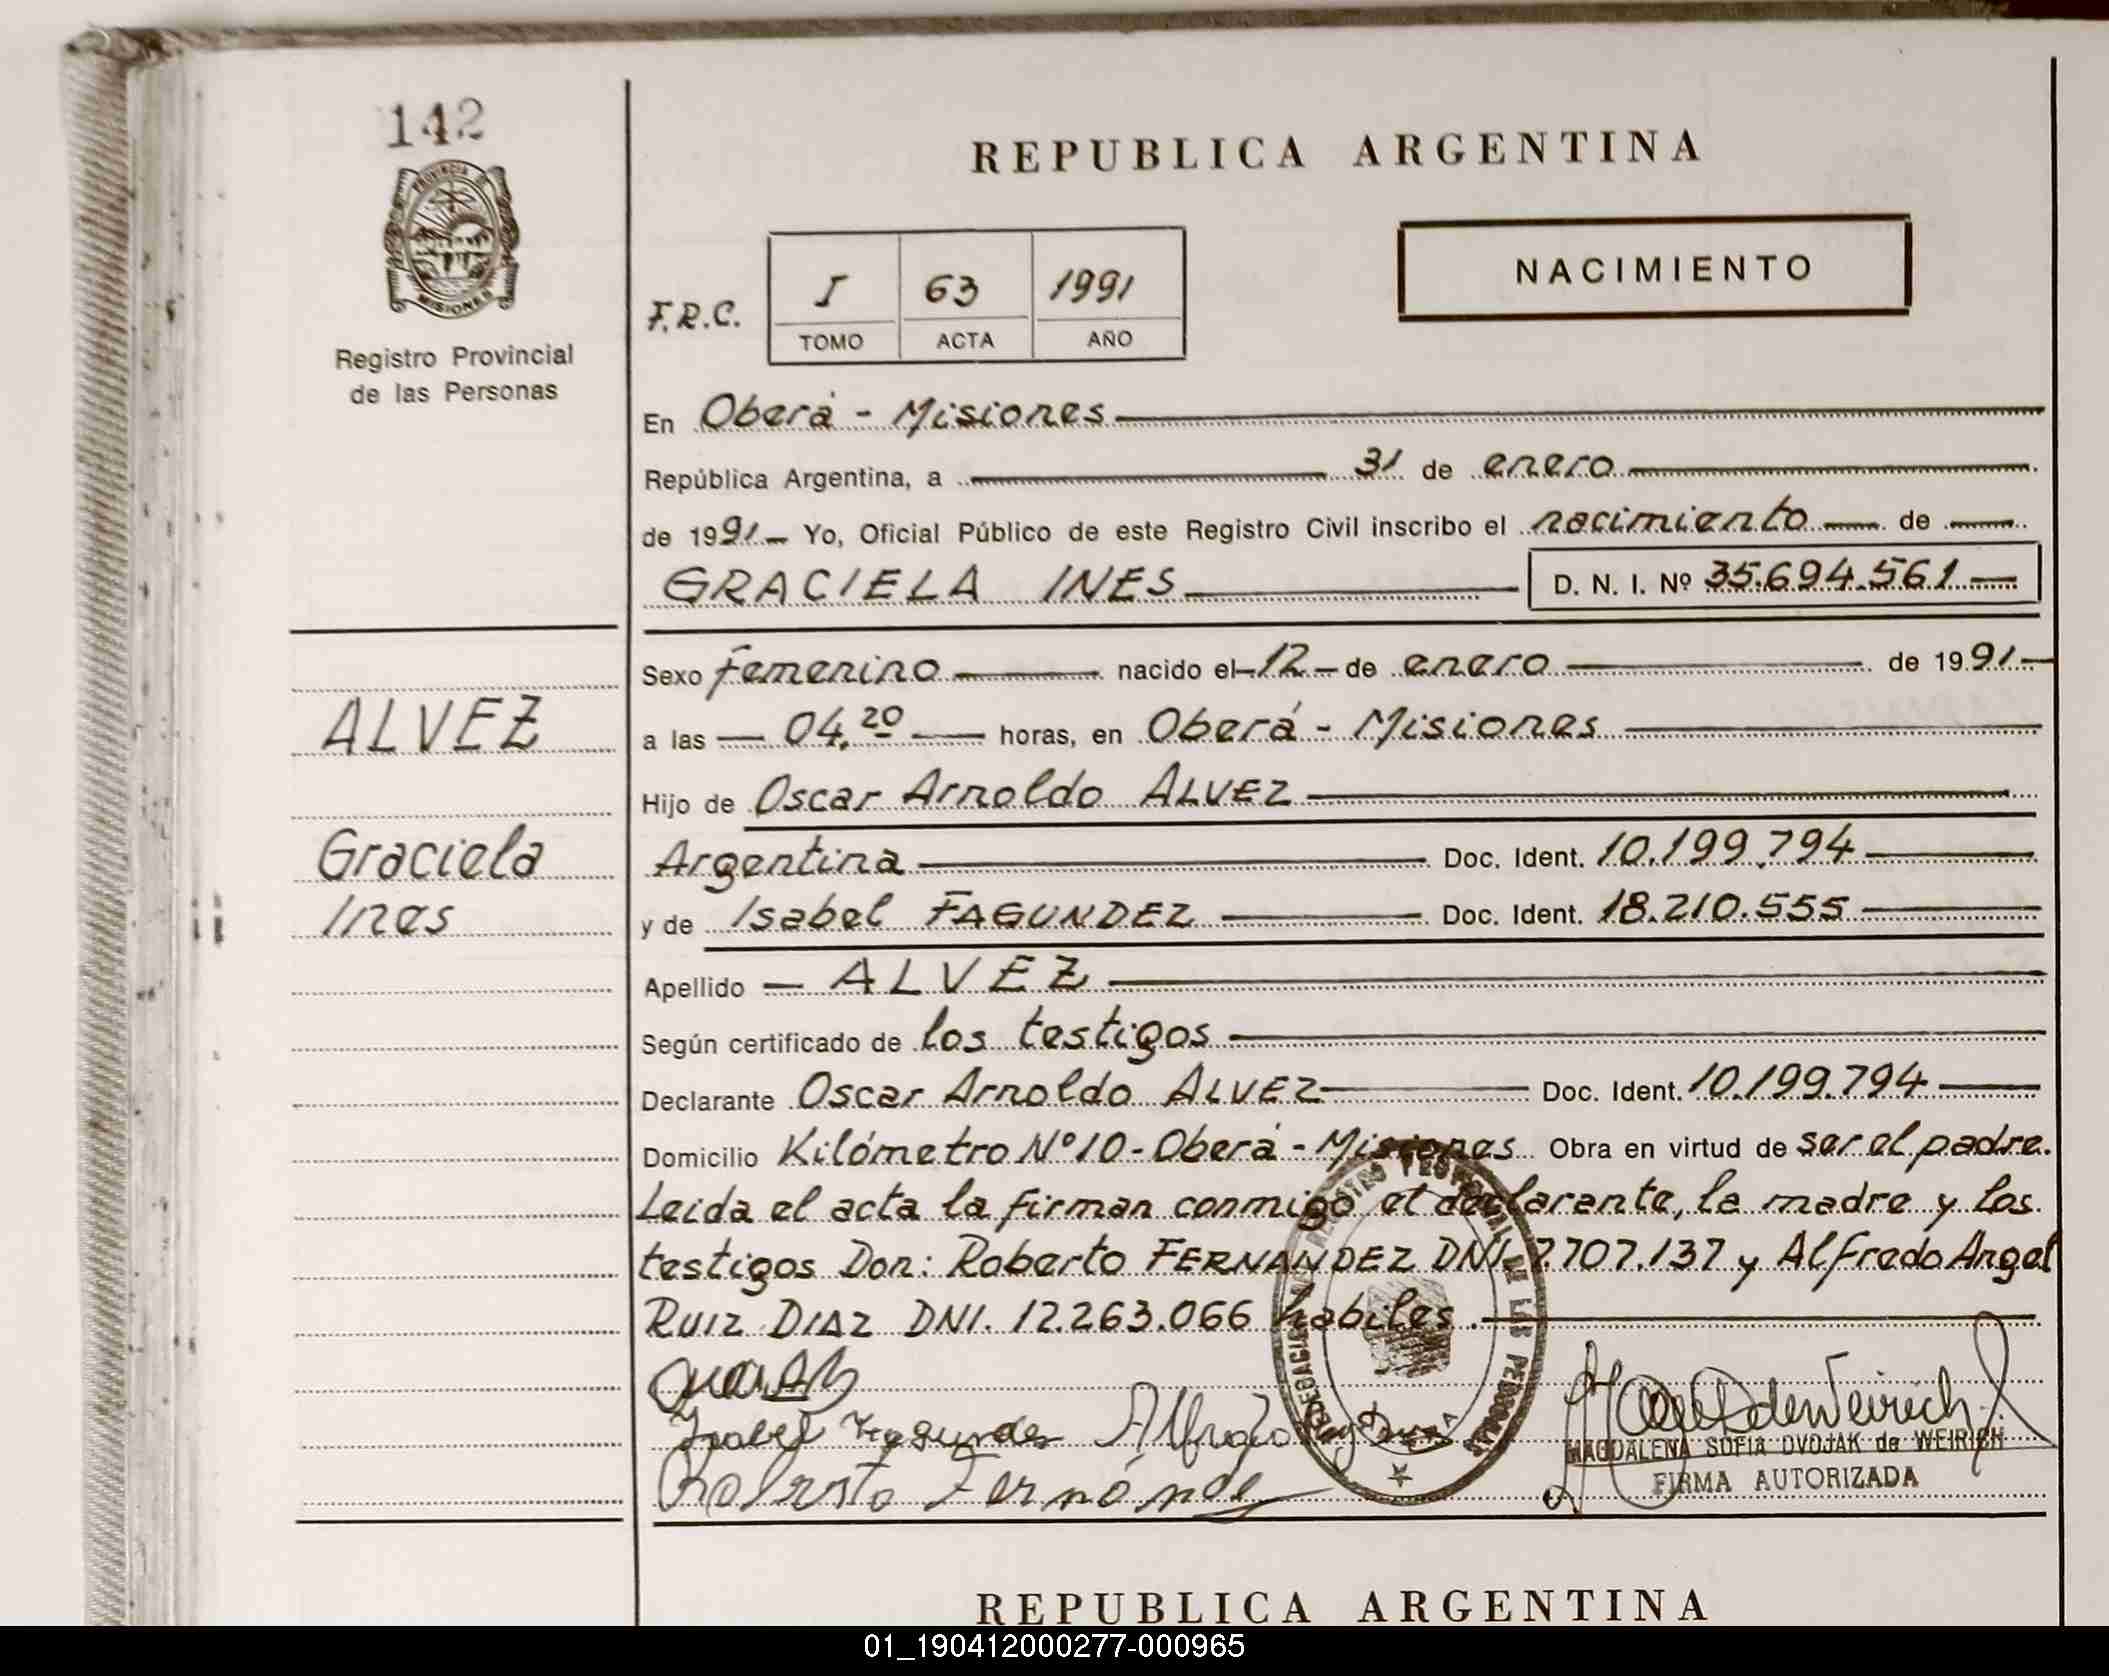 142
PROVINCIA DE
MISIONES
Registro Provincial
de las Personas
REPUBLICA ARGENTINA
NACIMIENTO
F.R.C. I 63 1991
TOMO ACTA AÑO
En Oberá - Misiones
República Argentina, a 31 de enero
de 1991 - Yo, Oficial Público de este Registro Civil inscribo el nacimiento de
GRACIELA INES D. N. I. Nº 35.694.561
Sexo Femenino nacido el 12 de enero de 1991
a las 04.20 horas, en Oberá - Misiones
Hijo de Oscar Arnoldo ALVEZ
Argentina Doc. Ident. 10.199.794
y de Isabel FAGUNDEZ Doc. Ident. 18.210.555
Apellido ALVEZ
Según certificado de los testigos
Declarante Oscar Arnoldo ALVEZ Doc. Ident. 10.199.794
Domicilio Kilómetro Nº 10 - Oberá - Misiones Obra en virtud de ser el padre.
Leida el acta la firman conmigo el declarante, la madre y los
testigos Don: Roberto FERNANDEZ DNI. 7.707.137 y Alfredo Angel
RUIZ DIAZ DNI. 12.263.066 habiles.
ALVEZ
Graciela
Ines
Isabel Fagundez
Roberto Fernández
MAGDALENA SOFIA DVOJAK de WEIRICH
FIRMA AUTORIZADA
REPUBLICA ARGENTINA
01_190412000277-000965